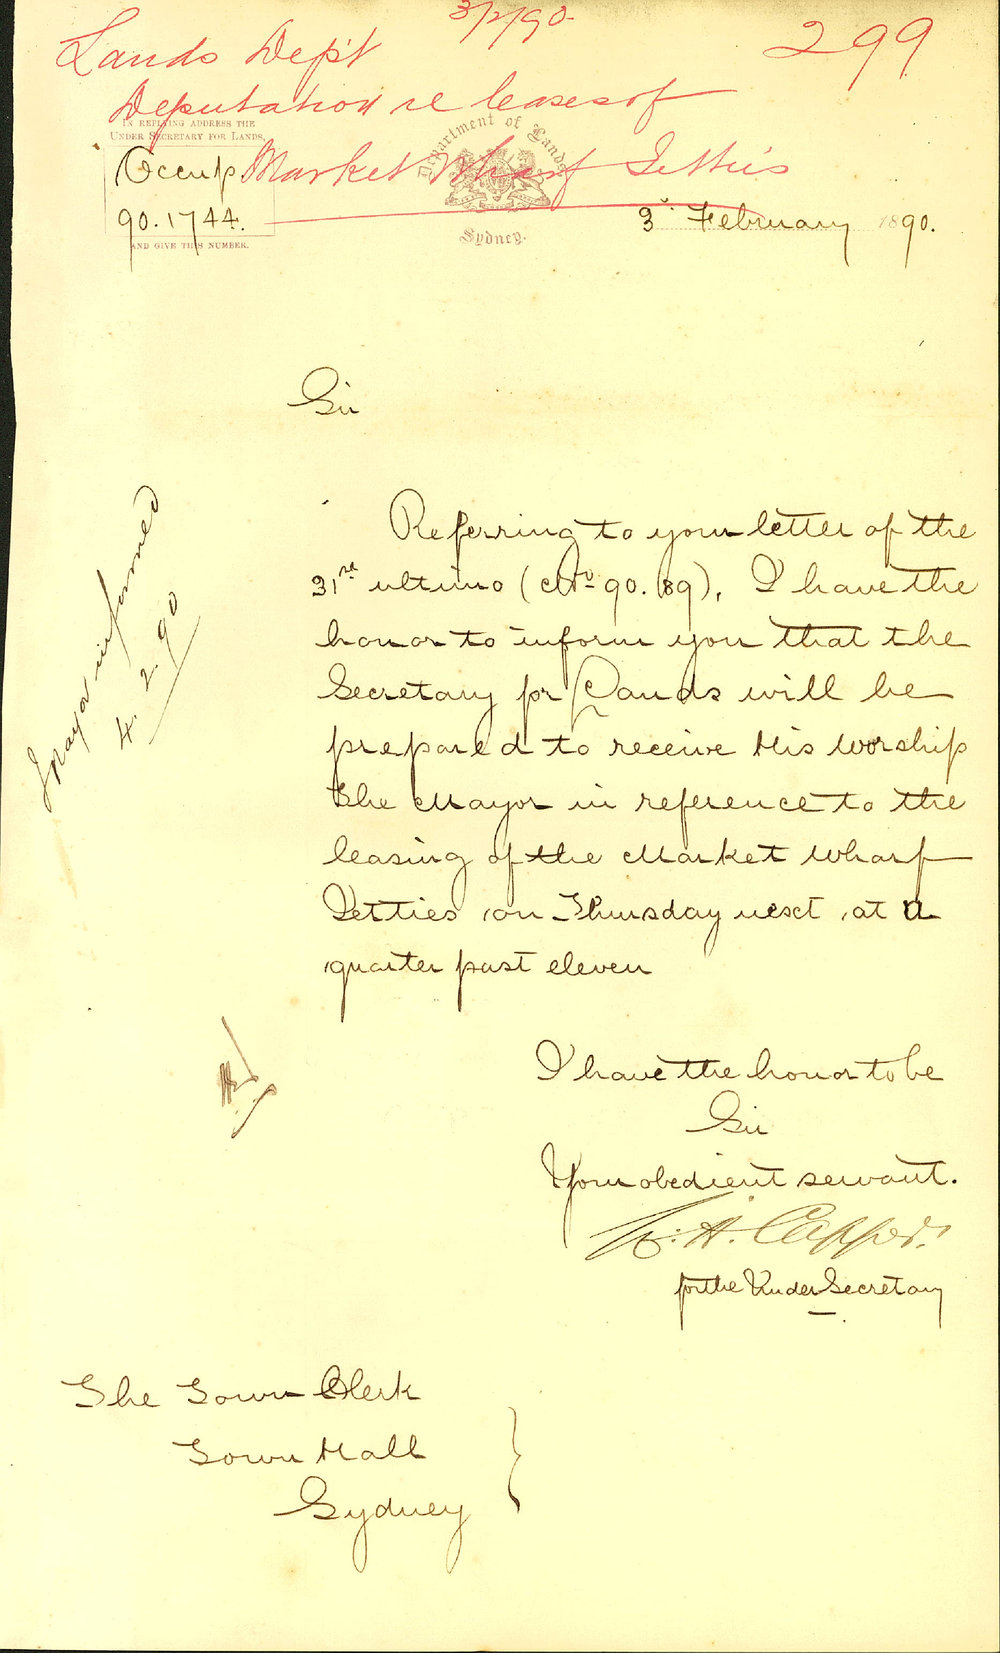 3/2/90
299
Lands Dep't
Deputation re leases of
Market Wharf Jetties
IN REPLYING ADDRESS THE
UNDER SECRETARY FOR LANDS,
Occup
90.1744.
AND GIVE THIS NUMBER.
Department of Lands
Sydney.
3rd February 1890.
Sir
Referring to your letter of the
31st ultimo (No 90.89), I have the
honor to inform you that the
Secretary for Lands will be
prepared to receive His Worship
the Mayor in reference to the
leasing of the Market Wharf
Jetties, on Thursday next, at a
quarter past eleven
Mayor informed
4.2.90
I have the honor to be
Sir
Your obedient servant.
W. H. Capper.
for the Under Secretary
The Town Clerk
Town Hall
Sydney